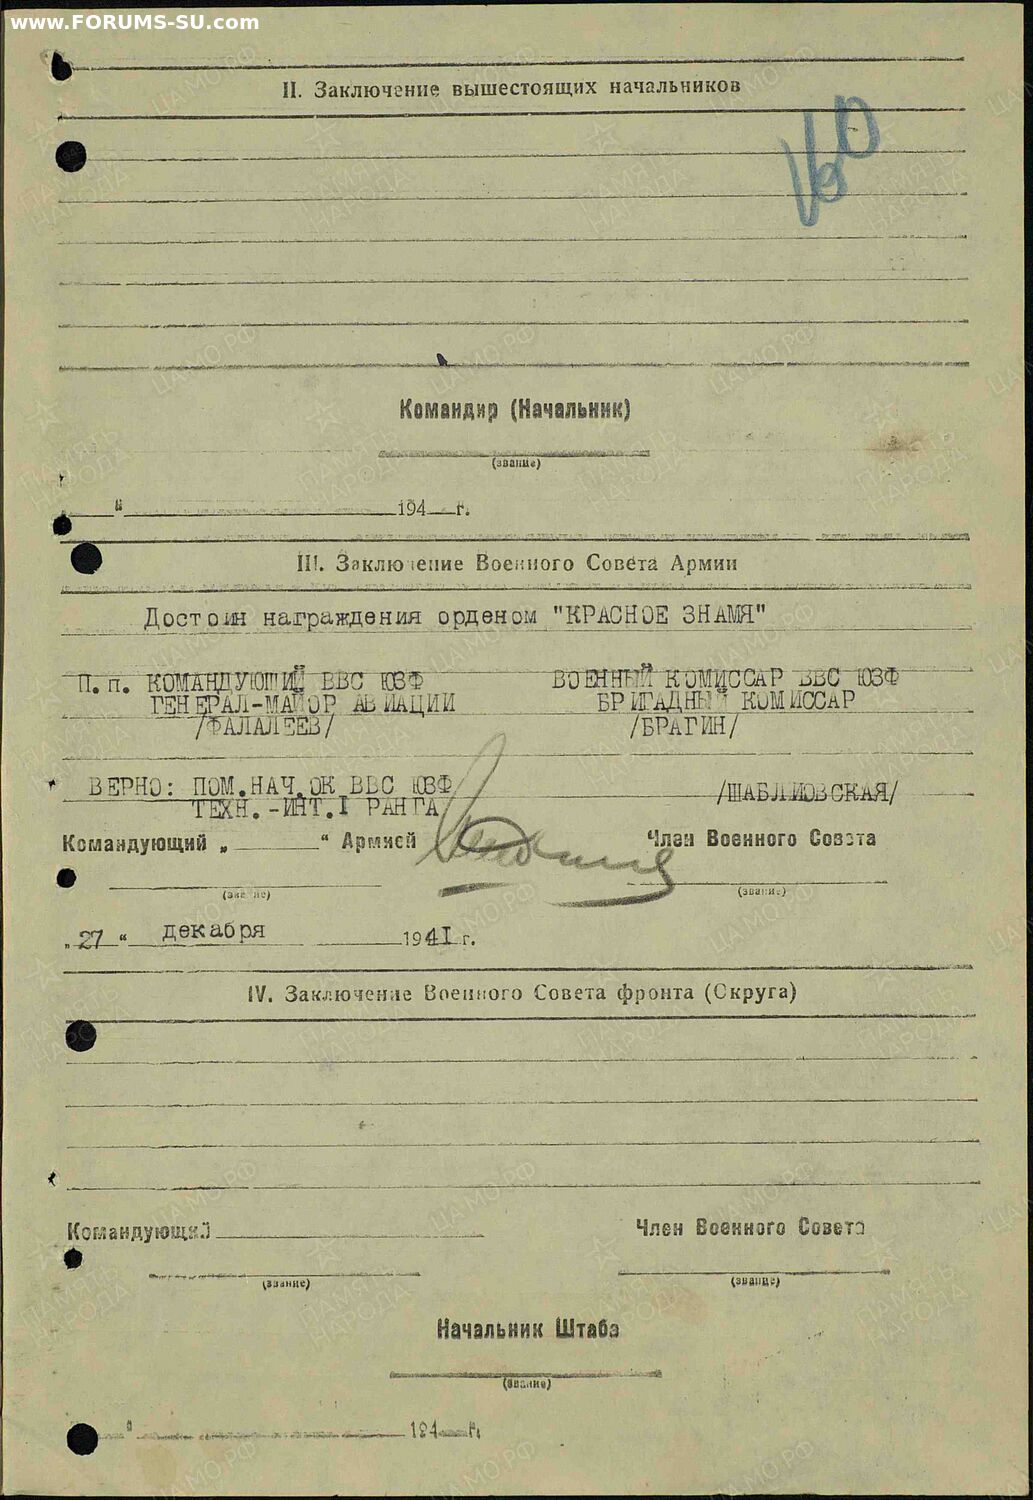 www.FORUMS-SU.com
II. Заключение вышестоящих начальников
160
Командир (Начальник)
(звание)
" 194 г.
III. Заключение Военного Совета Армии
Достоин награждения орденом "КРАСНОЕ ЗНАМЯ"
П.п. КОМАНДУЮЩИЙ ВВС ЮЗФ ВОЕННЫЙ КОМИССАР ВВС ЮЗФ
ГЕНЕРАЛ-МАЙОР АВИАЦИИ БРИГАДНЫЙ КОМИССАР
/ФАЛАЛЕЕВ/ /БРАГИН/
ВЕРНО: ПОМ.НАЧ.ОК ВВС ЮЗФ /ШАБЛИОВСКАЯ/
ТЕХН.-ИНТ.I РАНГА
Командующий „ “ Армией Член Военного Совета
(звание) (звание)
„27“ декабря 1941 г.
IV. Заключение Военного Совета фронта (Округа)
Командующий Член Военного Совета
(звание) (звание)
Начальник Штаба
(звание)
" 194 г.
ПАМЯТЬ НАРОДА
ЦАМО.РФ